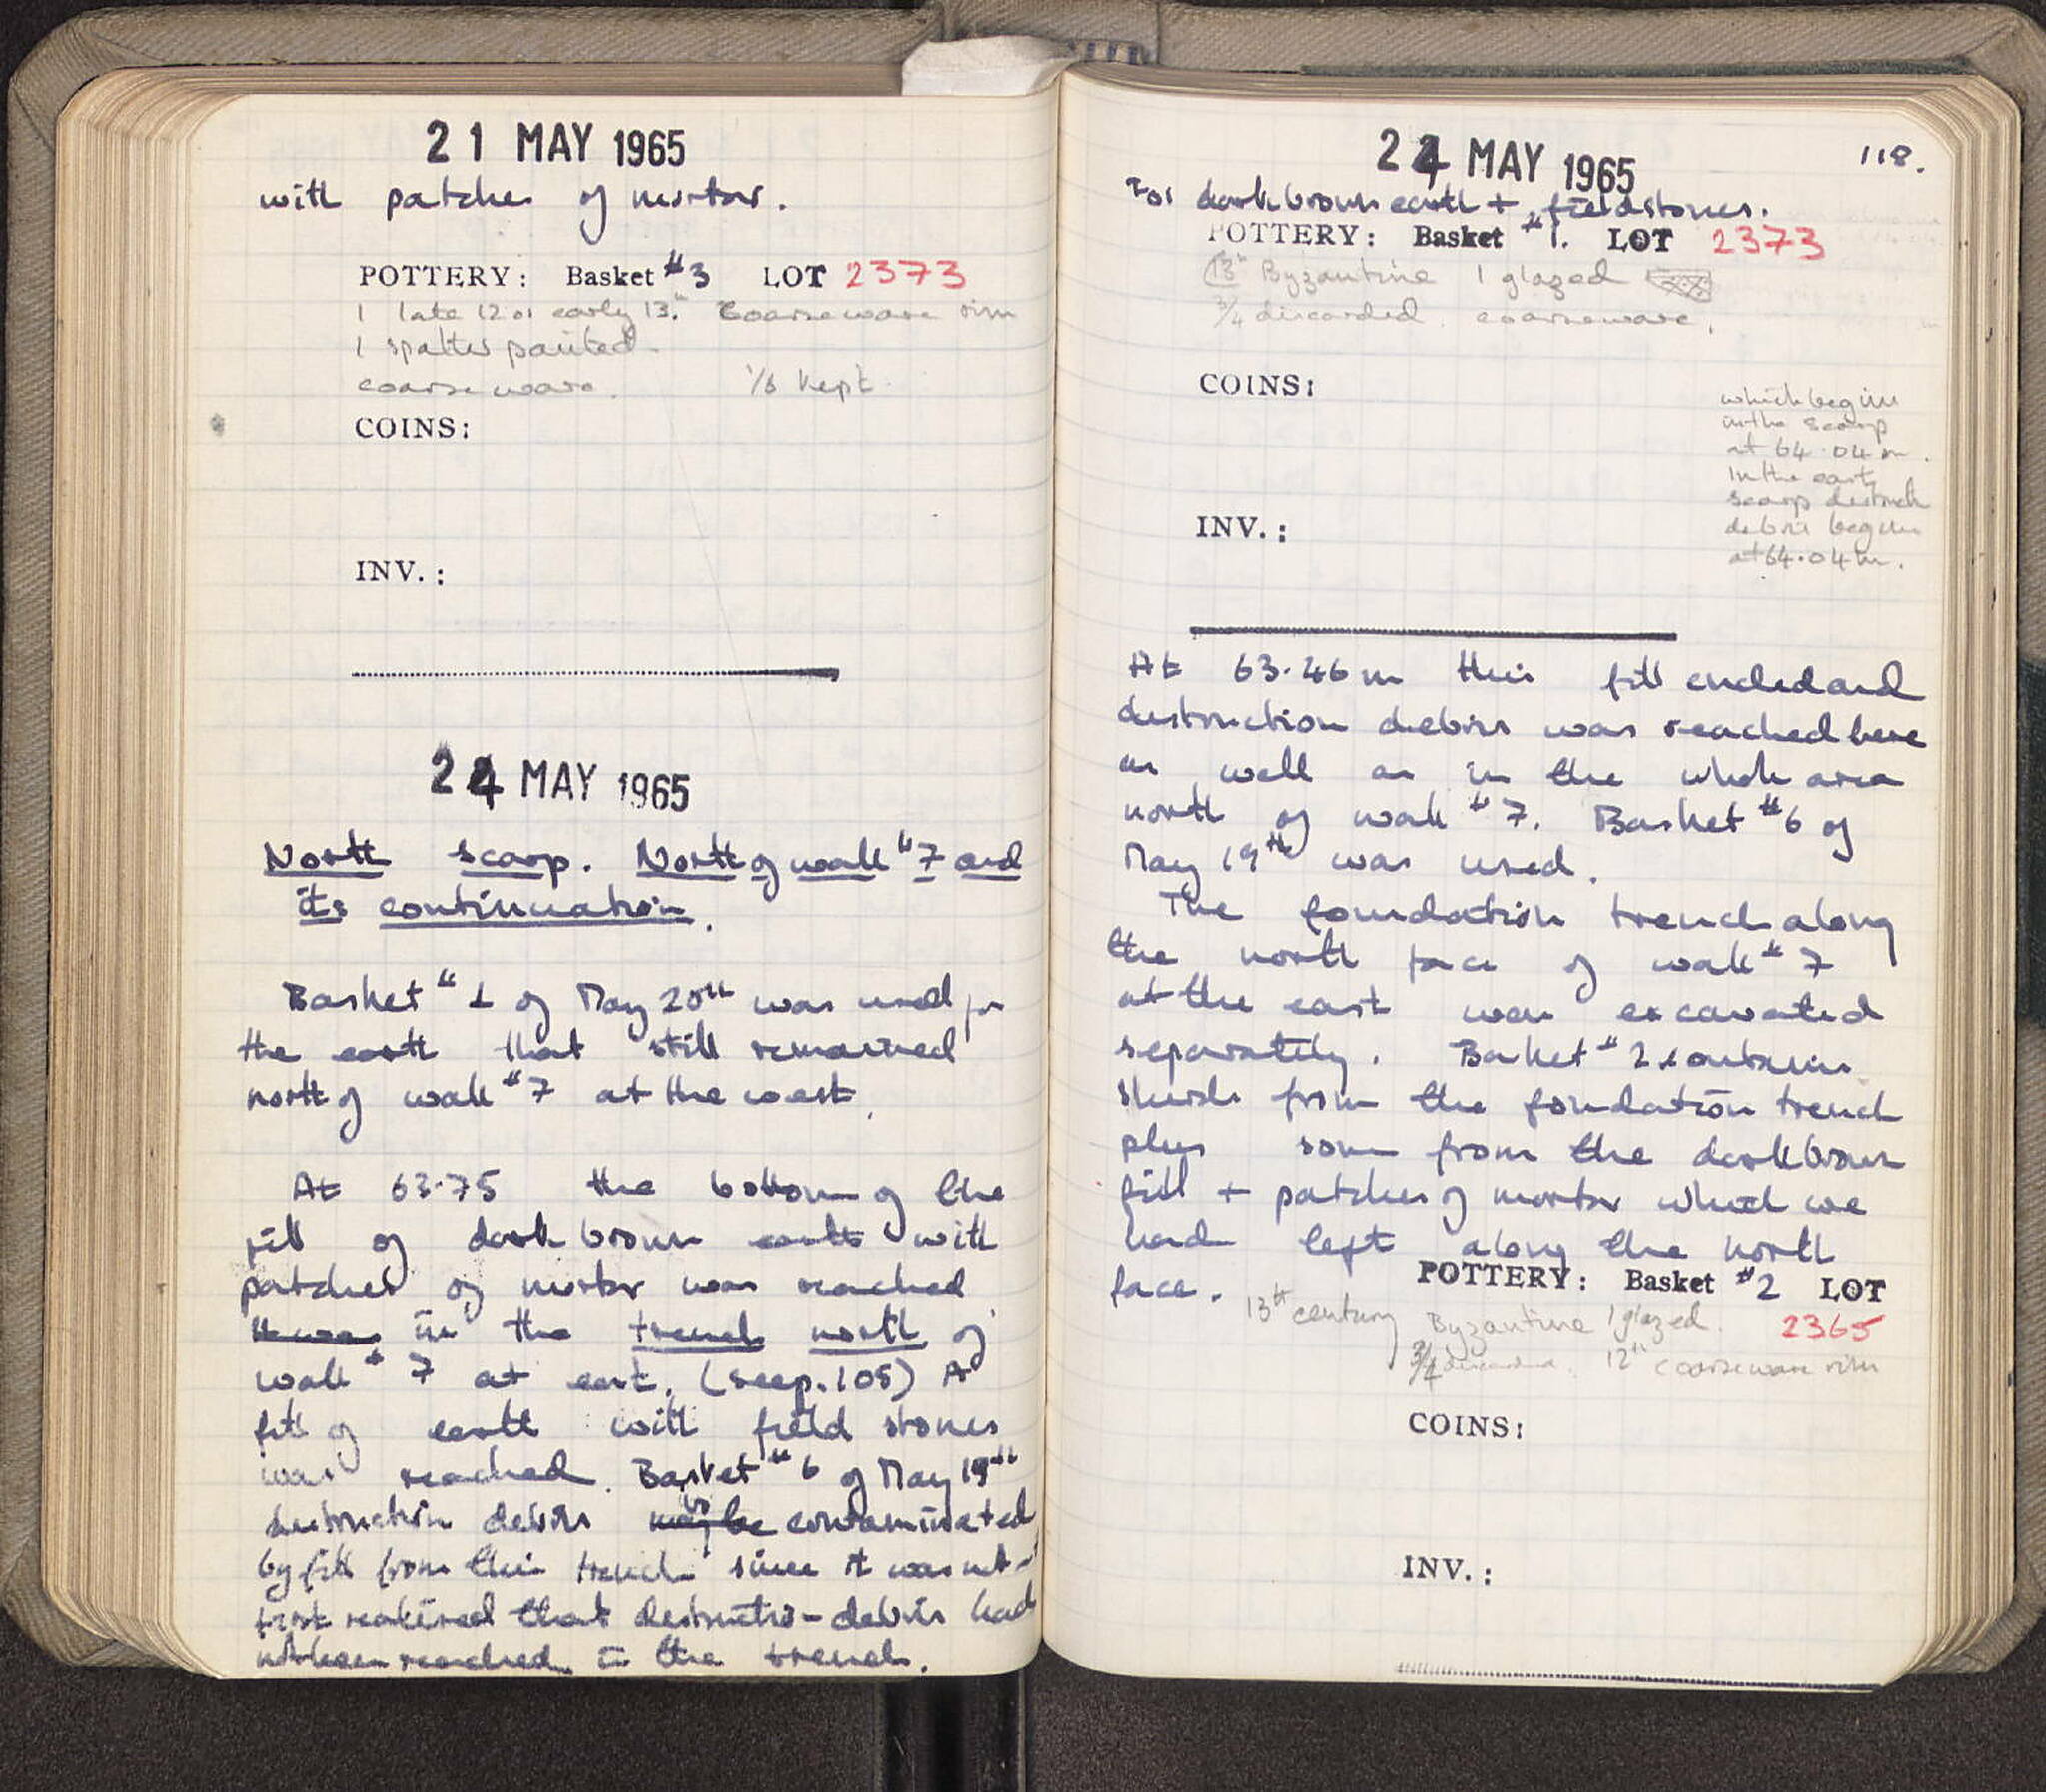 21 MAY 1965
with patches of mortar.
POTTERY: Basket #3 LOT 2373
1 late 12 or early 13th Coarseware rim
1 spatter painted.
coarseware. 1/8 kept.
COINS:
INV.:
24 MAY 1965
North scarp. North of wall #7 and
its continuation.
Basket #1 of May 20th was used for
the earth that still remained
north of wall #7 at the west.
At 63.75 the bottom of the
fill of dark brown earth with
patches of mortar was reached
it was in the trench north of
wall #7 at east. (see p. 105) A
fill of earth with field stones
was reached. Basket #6 of May 19th
destruction debris may be contaminated
by fill from this trench since it was not
first realized that destruction debris had
not been reached in the trench.
24 MAY 1965
118.
For dark brown earth + fieldstones.
POTTERY: Basket #1. LOT 2373
13th Byzantine 1 glazed
3/4 discarded. coarseware.
COINS:
which begins
in the scarp
at 64.04 m.
In the east
scarp destruct
debris begins
at 64.04 m.
INV.:
At 63.46 m this fill ended and
destruction debris was reached here
as well as in the whole area
north of wall #7. Basket #6 of
May 19th was used.
The foundation trench along
the north face of wall #7
at the east was excavated
separately. Basket #2 contains
sherds from the foundation trench
plus some from the dark brown
fill + patches of mortar which we
had left along the north
face.
POTTERY: Basket #2 LOT
13th century Byzantine 1 glazed. 2365
3/4 discarded. 12th coarseware rim
COINS:
INV.: